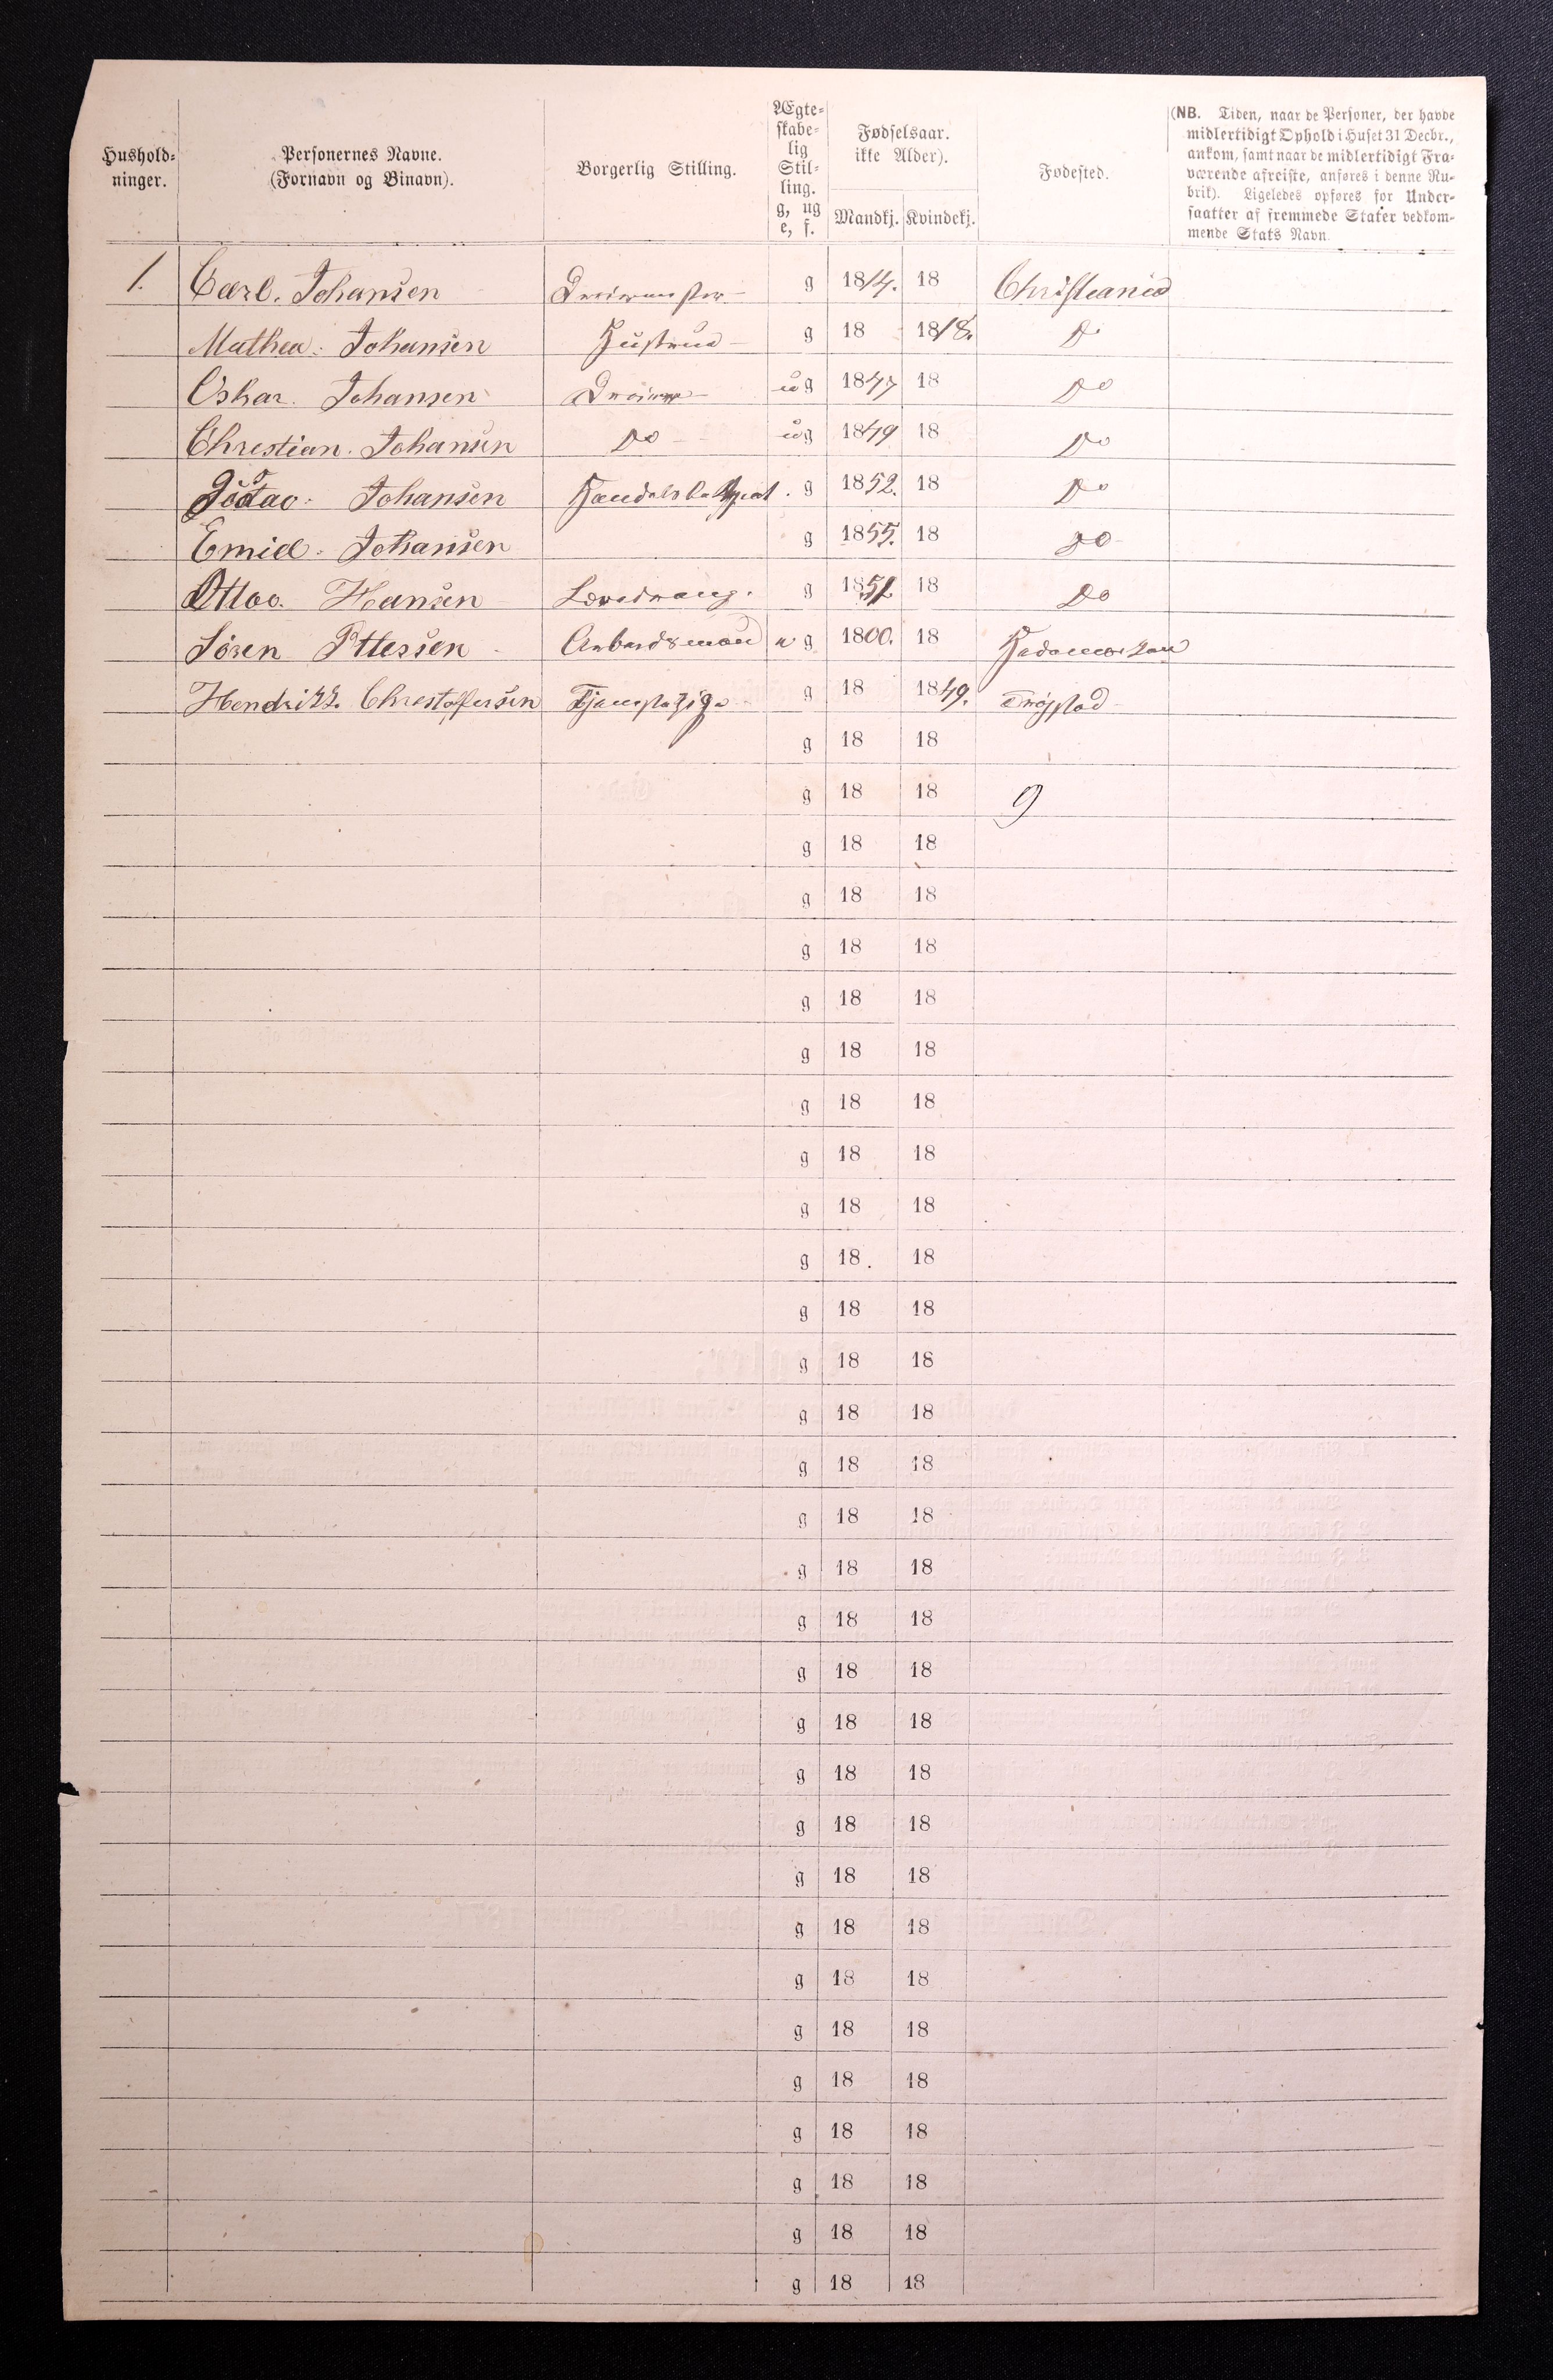 Hushold-
ninger.
Personernes Navne.
(Fornavn og Binavn).
Borgerlig Stilling.
Ægte-
skabe-
lig
Stil-
ling.
g, ug
e, f.
Fødselsaar.
ikke Alder).
Mandkj. Kvindekj.
Fødested.
(NB. Tiden, naar de Personer, der havde
midlertidigt Ophold i Huset 31 Decbr.,
ankom, samt naar de midlertidigt Fra-
værende afreiste, anføres i denne Ru-
brik). Ligeledes opføres for Under-
saatter af fremmede Stater vedkom-
mende Stats Navn.
1. Carl. Johansen Dreiermester g 1814. 18 Christiania
Mathea. Johansen Hustrue g 18 1818. Do
Oskar. Johansen Dreier ug 1847 18 Do
Chrestian. Johansen Do ug 1849 18 Do
Johansen g 1852. 18 Do
Emiel. Johansen g 1855. 18 Do
Ottoo. Hansen Læredreng. g 1851. 18 Do
Sören Ottessen Arbeidsmand ug 1800. 18
Hendrikke Chrestoffersen Tjenestepige g 18 1849. Trögstad
g 18 18
g 18 18 9
g 18 18
g 18 18
g 18 18
g 18 18
g 18 18
g 18 18
g 18 18
g 18 18
g 18. 18
g 18 18
g 18 18
g 18 18
g 18 18
g 18 18
g 18 18
g 18 18
g 18 18
g 18 18
g 18 18
g 18 18
g 18 18
g 18 18
g 18 18
g 18 18
g 18 18
g 18 18
g 18 18
g 18 18
g 18 18